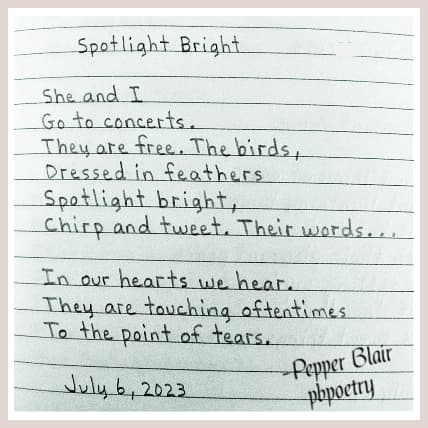 Spotlight Bright
She and I
Go to concerts.
They are free. The birds,
Dressed in feathers
Spotlight bright,
Chirp and tweet. Their words...
In our hearts we hear.
They are touching oftentimes
To the point of tears.
July 6, 2023
-Pepper Blair
pbpoetry